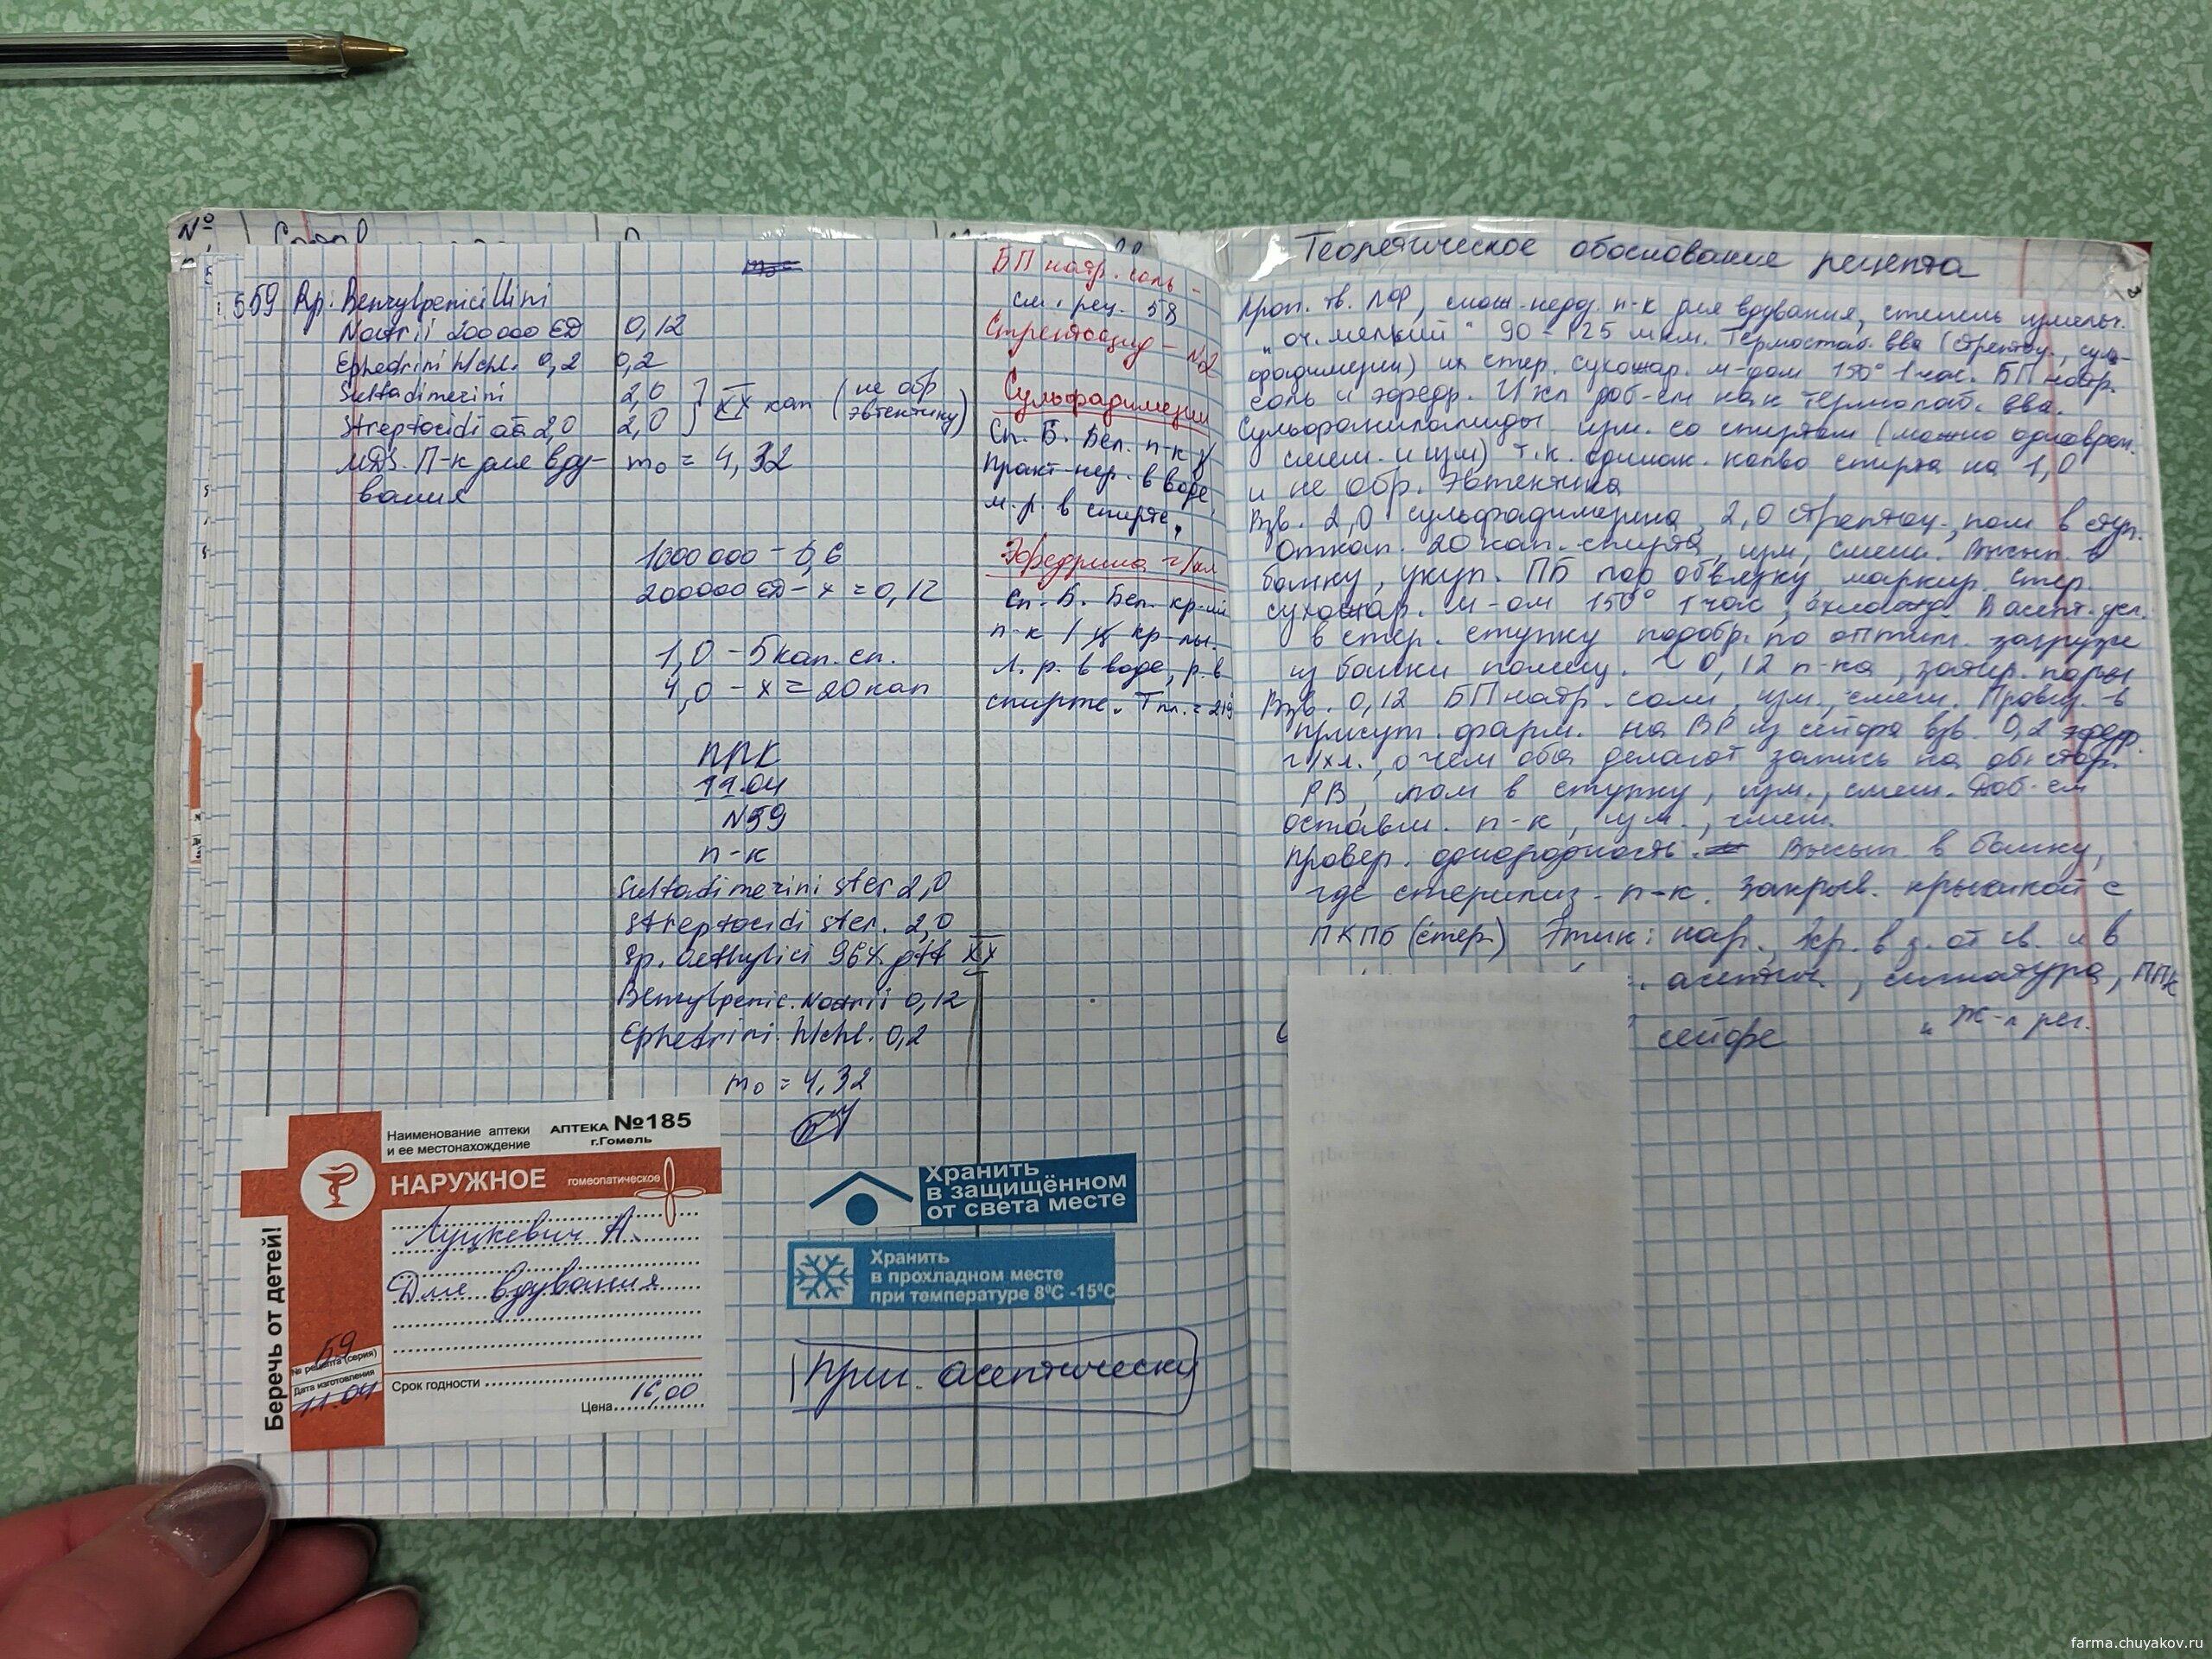 №
59 Rp: Benzylpenicillini
Natrii 200000 ЕД 0,12
Ephedrini h/chl. 0,2 0,2
Sulfadimerini 2,0
Streptocidi aa 2,0 2,0
XX кап (не обр эвтектику)
MDS. П-к для вду-
вания
m₀ = 4,32
1000000 - 0,6
200000 ЕД - x = 0,12
1,0 - 5 кап. сп.
4,0 - x = 20 кап
ППК
11.04
N59
п-к
Sulfadimerini ster 2,0
Streptocidi ster. 2,0
Sp. aethylici 96% gtt XX
Benzylpenic. Natrii 0,12
Ephedrini h/chl. 0,2
m₀ = 4,32
БП натр. соль -
см. рец. 58
Стрептоцид - №2
Сульфадимезин
Сп. Б. Бел. п-к
практ. нер. в воде,
м. р. в спирте,
Эфедрина г/хл
Сп. Б. Бел. кр-ий
п-к / кр-лы.
Л. р. в воде, р. в
спирте. Tпл. = 219
Наименование аптеки
и ее местонахождение
АПТЕКА №185
г.Гомель
НАРУЖНОЕ
гомеопатическое
Луцкевич А.
Для вдувания
Беречь от детей!
59
№ рецепта (серия)
Дата изготовления
11.04
Срок годности
16,00
Цена
Хранить
в защищённом
от света месте
Хранить
в прохладном месте
при температуре 8⁰С -15⁰С
Приг. асептически
Теоретическое обоснование рецепта
Проп. тв. ЛФ, слож. недоз. п-к для вдувания, степень измельч.
"оч. мелкий" 90 - 125 мкм. Термостаб. вва (стрептоц., суль-
фадимезин) их стер. сухожар. м-дом 150° 1 час. БП натр.
соль и эфедр. г/хл доб-ем как термолаб. вва.
Сульфаниламиды изм. со спиртом (можно одноврем.
смеш. и изм) т.к. одинак. колво спирта на 1,0
и не обр. эвтектика
Взв. 2,0 сульфадимезина, 2,0 стрептоц., пом в ступ.
Откап. 20 кап. спирта, изм, смеш. Высып. в
банку, укуп. ПБ под обвязку, маркир. Стер.
сухожар. м-ом 150° 1 час, охлажд. В асепт. усл.
в стер. ступку подобр. по оптим. загрузке
из банки помещ. ~ 0,12 п-ка, затир. поры
Взв. 0,12 БП натр. соли, изм., смеш. Провиз. в
присут. фарм. на ВР из сейфа взв. 0,2 эфедр.
г/хл., о чем оба делают запись на об. стор.
РВ, пом в ступку, изм., смеш. Доб-ем
оставш. п-к, изм., смеш.
Провер. однородность. Высып. в банку,
где стерилиз. п-к. Закрыв. крышкой с
ПКПБ (стер.) Этик: нар., Хр. в з. от св. и в
асептич, сигнатура, ППК
сейфе
"Ж-л рег.
farma.chuyakov.ru